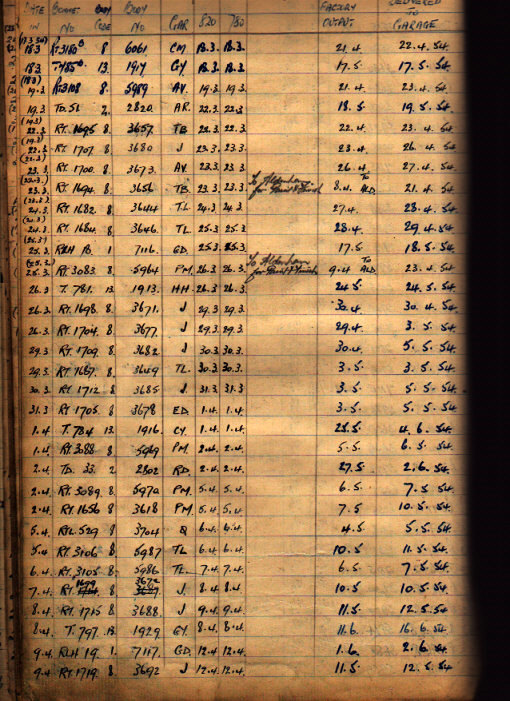 DATE BONNET BODY BODY FACTORY DELIVERED
IN No CODE No GAR 820 780 OUTPUT TO GARAGE
(17.3.54)
18.3 RT.3150 8 6061 CM 18.3. 18.3. 21.4 22.4.54
18.3. T.785 13. 1917 GY 18.3. 18.3. 17.5 17.5.54
(18.3)
19.3 RT3108 8. 5989 AV. 19.3 19.3 21.4 23.4.54.
19.3 TD.51 2 2820. AR. 22.3 22.3. 18.5 19.5.54
(19.3)
22.3. RT.1695 8 3657 TB 22.3 22.3 22.4. 23.4.54
(19.3)
22.3 RT.1707 8 3680 J 23.3. 23.3. 23.4 26.4.54
(22.3)
23.3. RT.1700. 8 3673. AV. 23.3 23.3. 26.4 27.4.54
To Aldenham TO
23.3. RT.1694 8 3656 TB 23.3 23.3 for Paint & Finish 8.4. ALD 21.4.54
(23.3)
24.3. RT.1682. 8 3644 TL 24.3 24.3 27.4. 28.4.54
(24.3)
25.3 RT.1684. 8 3646. TL 25.3 25.3 28.4 29.4.54
(25.3)
25.3. RLH 18. 1 7116. GD. 25.3 25.3. 17.5 18.5.54
(25.3.) To Aldenham TO
25.3. RT.3083 8 5964 PM. 26.3 26.3. for Paint & Finish 9.4 ALD 23.4.54
26.3 T.781. 13 1913. HH. 26.3 26.3. 24.5 24.5.54
26.3. RT.1698. 8 3671. J 29.3 29.3. 30.4. 30.4.54
26.3. RT.1704. 8 3677. J 29.3 29.3. 29.4. 3.5.54
29.3 RT.1709 8 3682 J 30.3 30.3. 30.4 5.5.54
29.3. RT.1687. 8 3649 TL. 30.3 30.3. 3.5 3.5.54
30.3. RT.1712 8 3685 J 31.3 31.3 3.5 5.5.54
31.3 RT.1705 8 3678 ED 1.4. 1.4. 3.5. 5.5.54
1.4 T.784 13. 1916. CY. 1.4. 1.4. 25.5. 4.6.54
1.4. RT.3088. 8 5969 PM. 2.4. 2.4. 5.5 6.5.54
2.4 TD.33. 2 2802 RD. 2.4. 2.4. 27.5 2.6.54
2.4. RT.3089 8. 5970 PM. 5.4 5.4. 6.5 7.5.54
2.4 RT.1656 8 3618 PM. 5.4. 5.4. 7.5 10.5.54
5.4. RTL.529 8 3704 Q 6.4. 6.4. 4.5 5.5.54
5.4. RT.3106 8. 5987 TL 6.4. 6.4. 10.5 11.5.54
6.4. RT.3105 8 5986 TL. 7.4. 7.4. 6.5 7.5.54
1699 3672
7.4. RT. 8 J. 8.4 8.4. 10.5 10.5.54
8.4. RT.1715 8 3688 J 9.4. 9.4. 11.5 12.5.54
8.4. T.797 13 1929 GY. 8.4. 8.4. 11.6. 16.6.54
9.4. RLH 19. 1. 7117. GD. 12.4 12.4. 1.6. 2.6.54
9.4. RT.1719. 8 3692 J 12.4. 12.4. 11.5 12.5.54